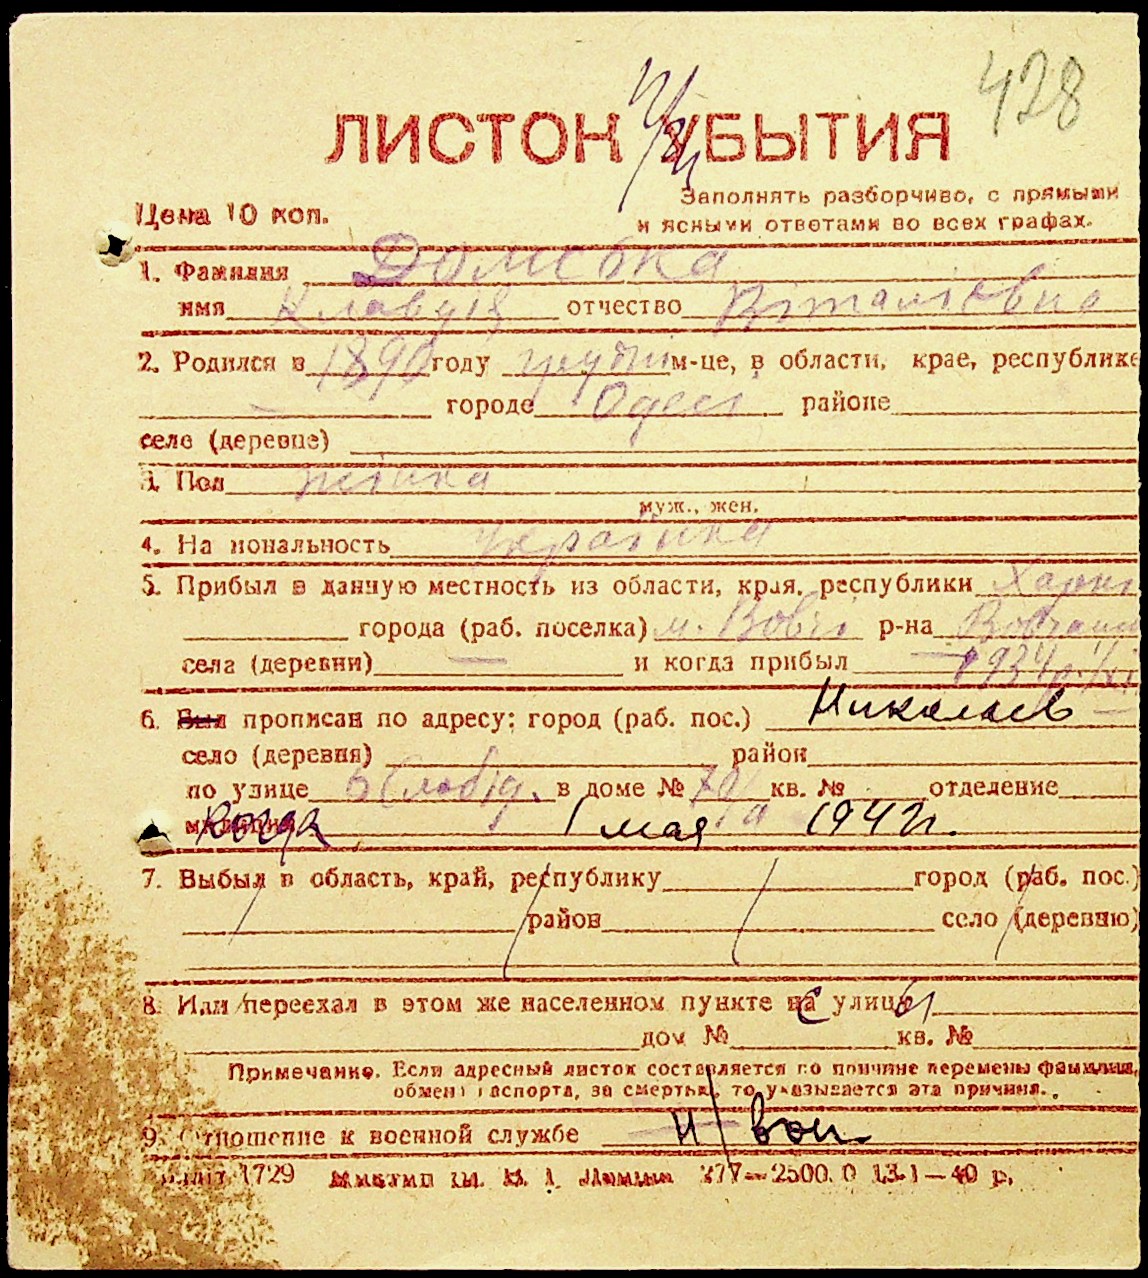 428
ЛИСТОК УБЫТИЯ
Цена 10 коп.
Заполнять разборчиво, с прямыми
и ясными ответами во всех графах.
1. Фамилия Домсбка
имя Клавдія отчество Віталієвна
2. Родился в 1890 году грудні м-це, в области, крае, республике
— городе Одесі районе
селе (деревне)
3. Пол жінка
муж., жен.
4. Национальность Українка
5. Прибыл в данную местность из области, края, республики Харк
города (раб. поселка) м. Вовчі р-на Вовчанс
села (деревни) — и когда прибыл 1934р.
6. Был прописан по адресу: город (раб. пос.) Николаев
село (деревня) район
по улице 6 Слобід. в доме № кв. № отделение
милиции Когда 1 мая 1942г.
7. Выбыл в область, край, республику город (раб. пос.)
район село (деревню)
8. Или переехал в этом же населенном пункте на с улицы
дом № кв. №
Примечание. Если адресный листок составляется по причине перемены фамилии,
обмена паспорта, за смертью, то указывается эта причина.
9. Отношение к военной службе Н/воп
1729 277—2500.0 13-I—40 р.